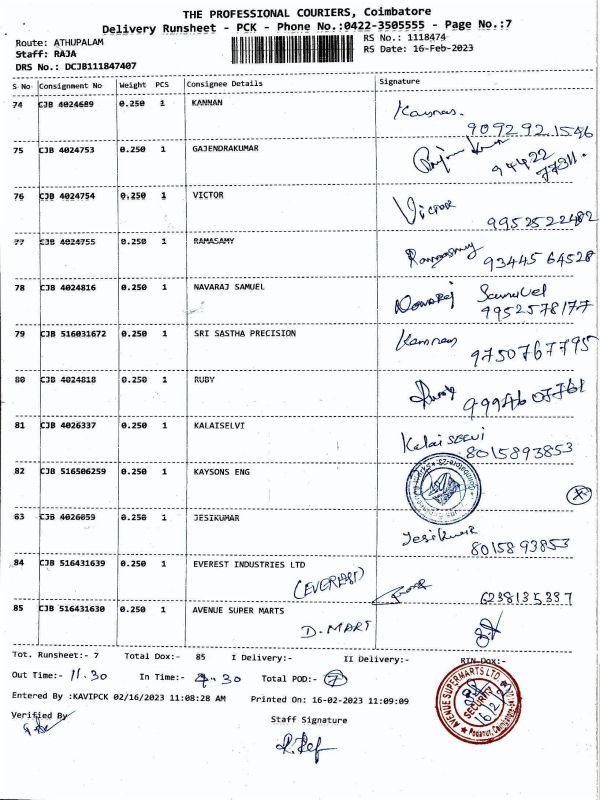 THE PROFESSIONAL COURIERS, Coimbatore
Delivery Runsheet - PCK - Phone No.:0422-3505555 - Page No.:7
Route: ATHUPALAM
Staff: RAJA
DRS No.: DCJB111847407
RS No.: 1118474
RS Date: 16-Feb-2023
S No Consignment No Weight PCS Consignee Details Signature
74 CJB 4024689 0.250 1 KANNAN
9092921546
75 CJB 4024753 0.250 1 GAJENDRAKUMAR
94422
77311
76 CJB 4024754 0.250 1 VICTOR Victor
9952522482
77 CJB 4024755 0.250 1 RAMASAMY Ramasamy 9344564528
78 CJB 4024816 0.250 1 NAVARAJ SAMUEL Navaraj Samuel
9952578177
79 CJB 516031672 0.250 1 SRI SASTHA PRECISION
9750767795
80 CJB 4024818 0.250 1 RUBY
9994607761
81 CJB 4026337 0.250 1 KALAISELVI Kalaiselvi
8015893853
82 CJB 516506259 0.250 1 KAYSONS ENG
83 CJB 4026059 0.250 1 JESIKUMAR Jesikumar
8015893853
84 CJB 516431639 0.250 1 EVEREST INDUSTRIES LTD
(EVEREST)
6238135337
85 CJB 516431630 0.250 1 AVENUE SUPER MARTS
D.MART
Tot. Runsheet:- 7 Total Dox:- 85 I Delivery:- II Delivery:- RTN Dox:-
Out Time:- 11.30 In Time:- 7.30 Total POD:- 7
Entered By :KAVIPCK 02/16/2023 11:08:28 AM Printed On: 16-02-2023 11:09:09
Verified By Staff Signature
AVENUE SUPERMARTS LTD
SECURITY